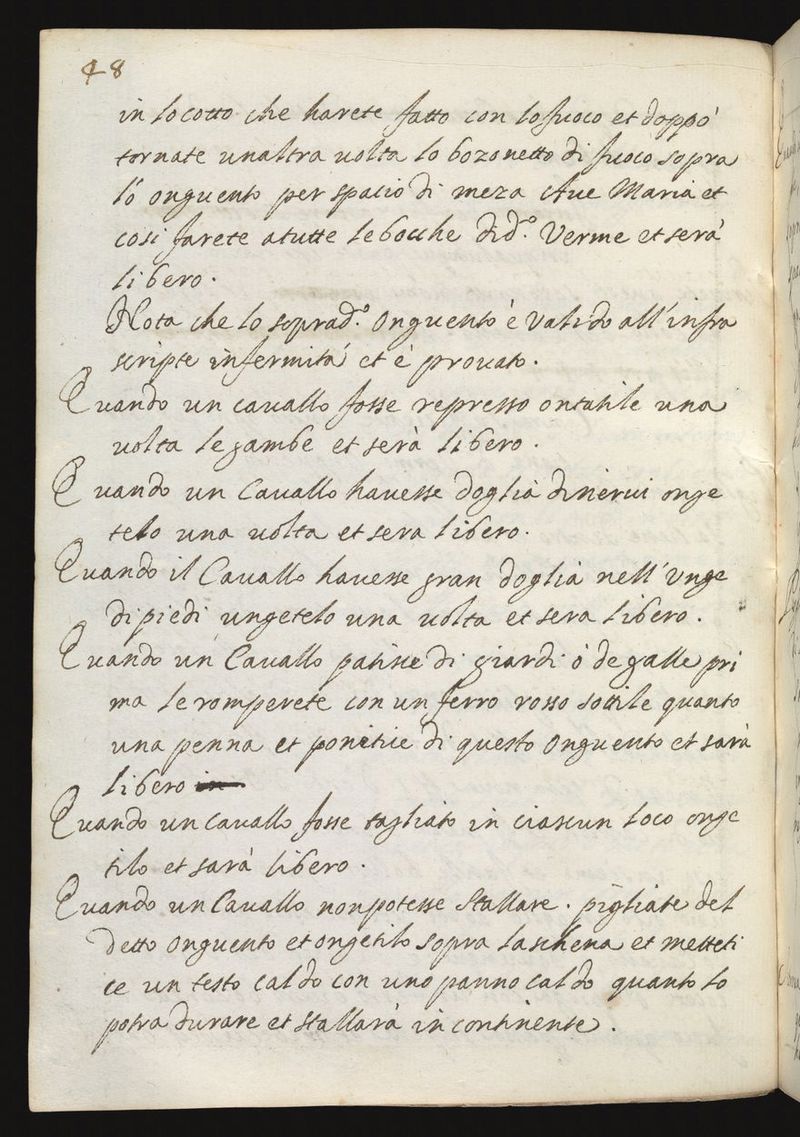 48
in lo cotto che harete fatto con lo fuoco et doppò
tornate unaltra uolta lo bozonetto di fuoco sopra
lo onguento per spacio di meza Aue Maria et
cosi farete a tutte le bocche di d.º Verme et serà
libero.
Nota che lo soprad.º onguento è valido all'infra
scripte infermità et è prouato.
Quando un cauallo fosse represso ontatile una
uolta le gambe et serà libero.
Quando un Cauallo hauesse doglia di nerui onge
telo una uolta et sera libero.
Quando il Cauallo hauesse gran doglia nell'unge
di piedi ungetelo una uolta et sera libero.
Quando un Cauallo patisse di giardi ò de galle pri
ma le romperete con un ferro rosso sottile quanto
una penna et ponitiue di questo onguento et sarà
libero
Quando un cauallo fosse tagliato in ciascun loco onge
tilo et sarà libero.
Quando un Cauallo non potesse stallare. pigliate del
detto onguento et ongetilo sopra la schena et metteti
ce un testo caldo con uno panno caldo quanto lo
potra durare et stallarà in continente.